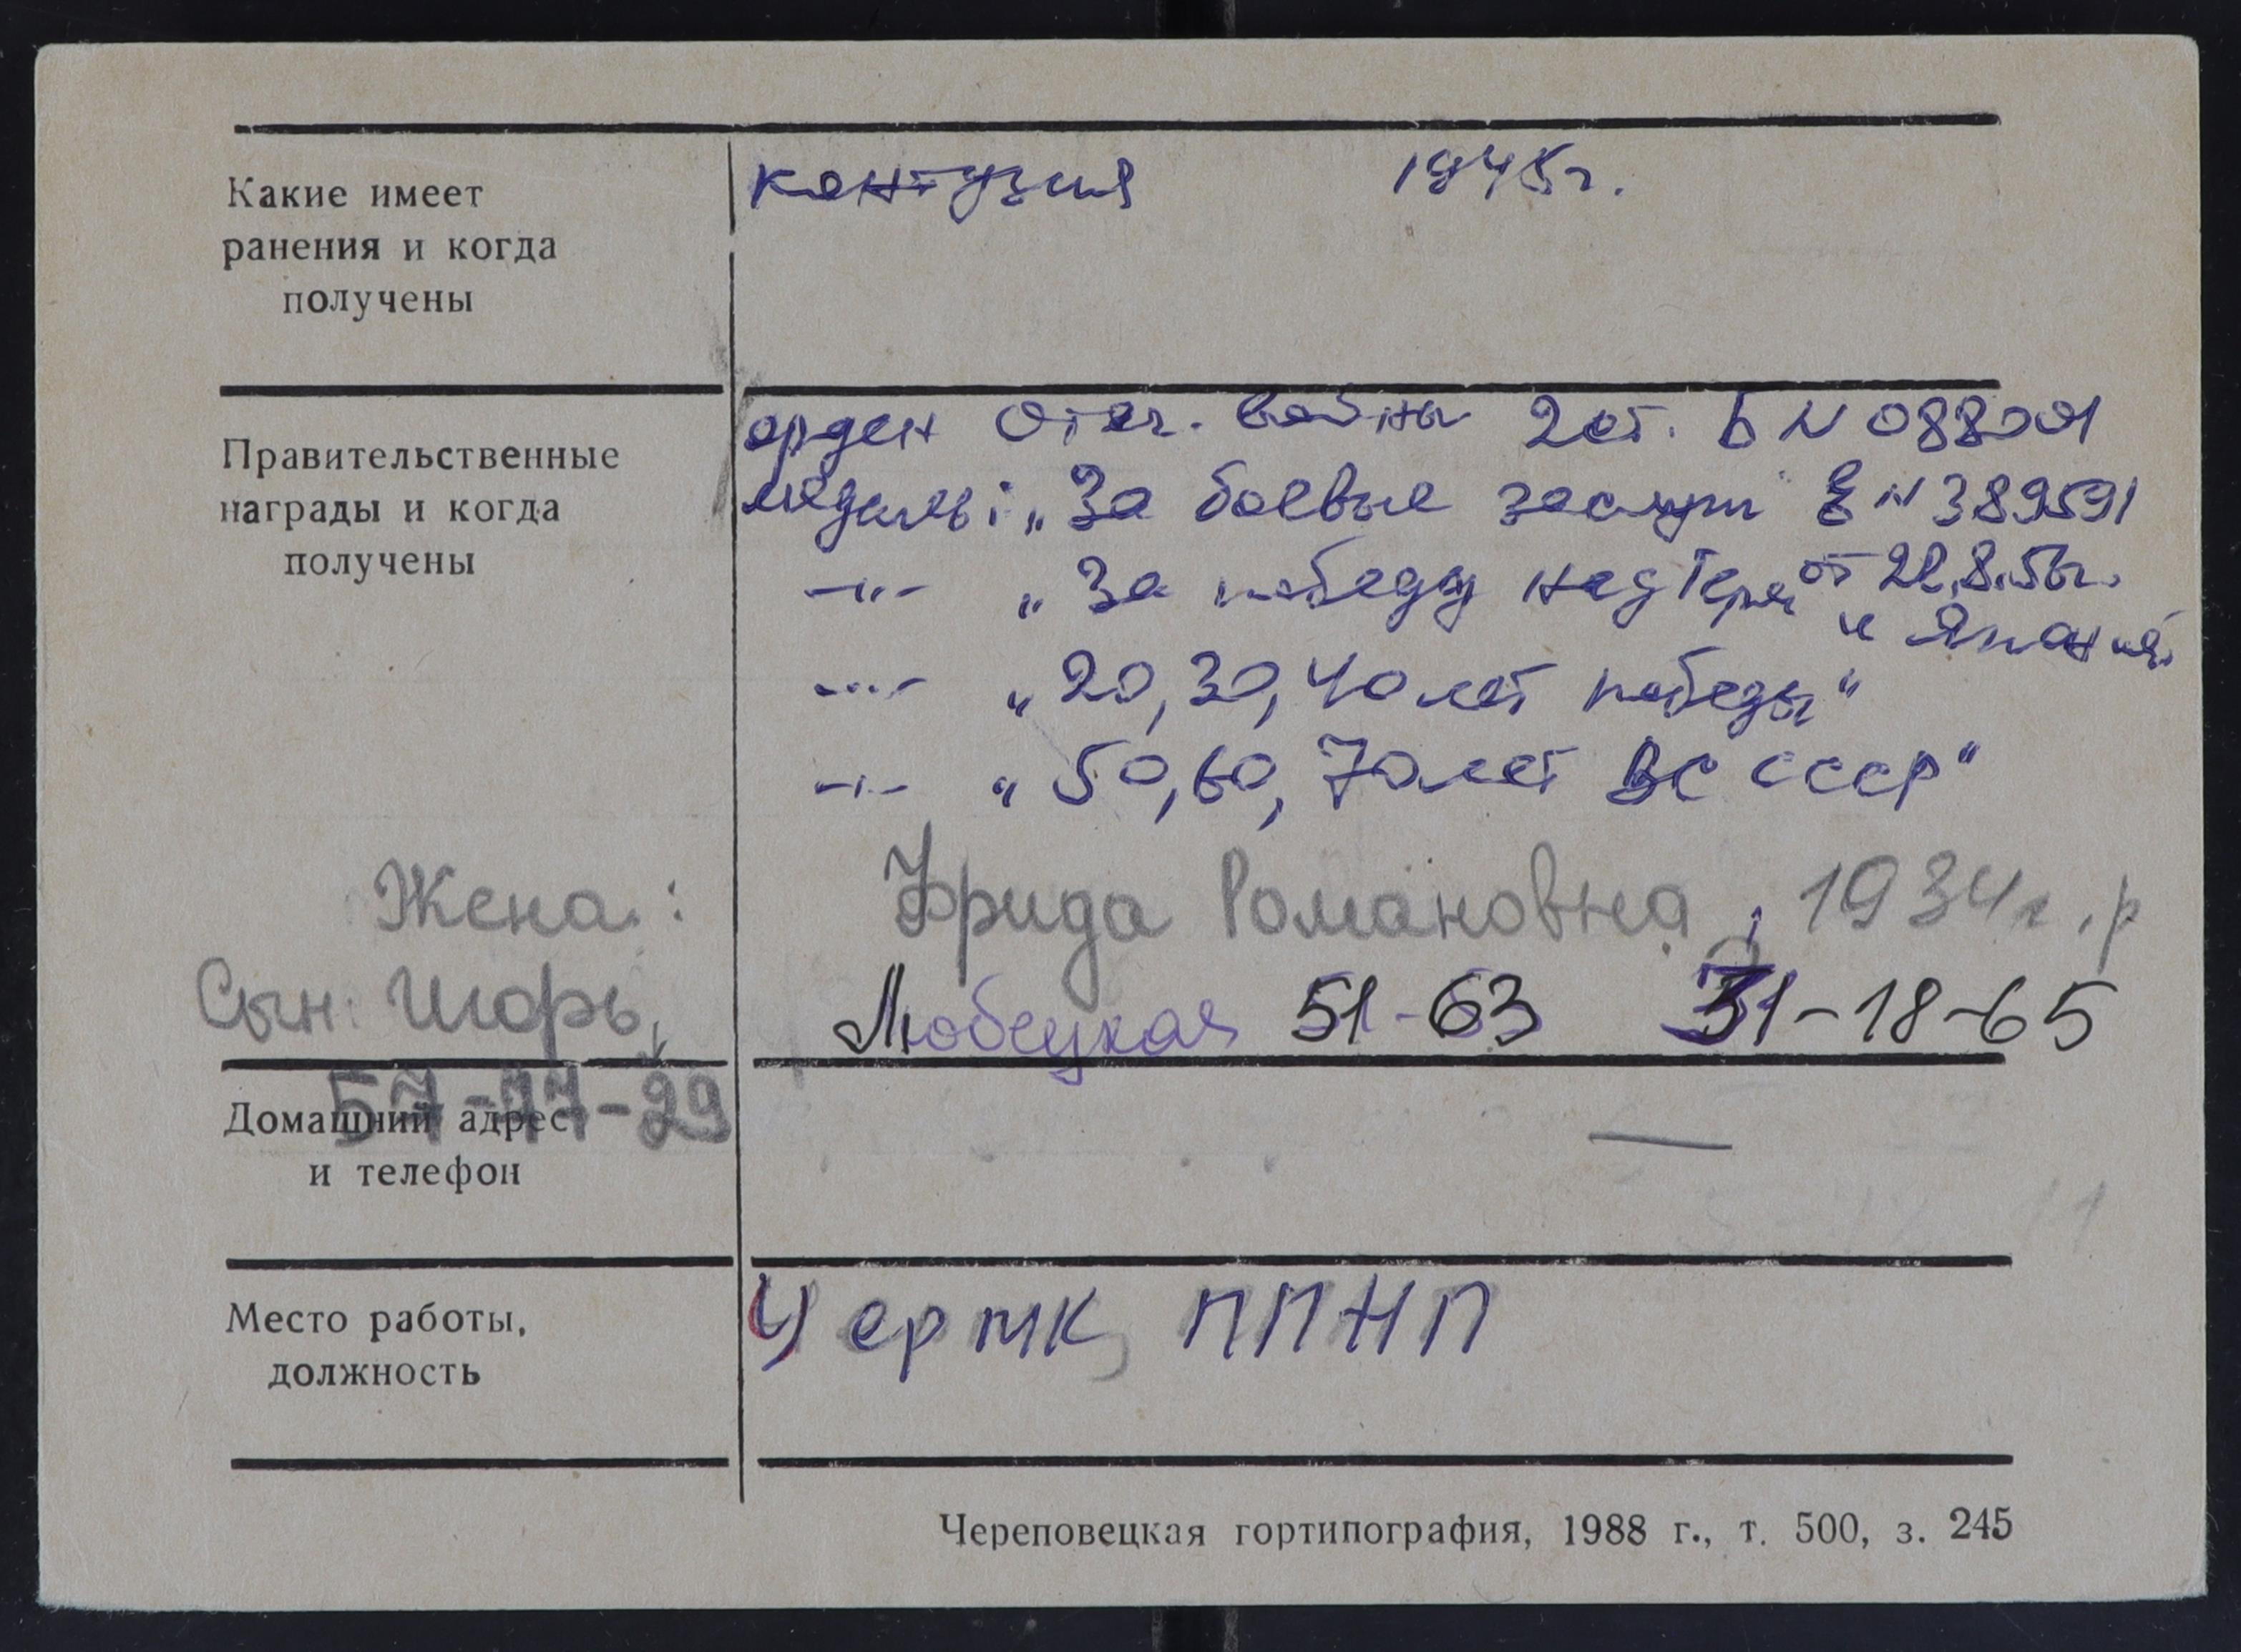 Какие имеет
ранения и когда
получены
контузия 1945г.
Правительственные
награды и когда
получены
орден Отеч. войны 2 ст. Б N 088001
медаль: „За боевые заслуги Е N 389591
—"— „За победу над Герм от 22.8.56г.
и Японией
—"— „20, 30, 40 лет победы"
—"— „50, 60, 70 лет ВС СССР"
Жена: Фрида Романовна, 1934г.р
Сын: Игорь, Любецкая 51-63 31-18-65
57-77-29
Домашний адрес
и телефон
Место работы,
должность
ЧерМК, ППНП
Череповецкая гортипография, 1988 г., т. 500, з. 245